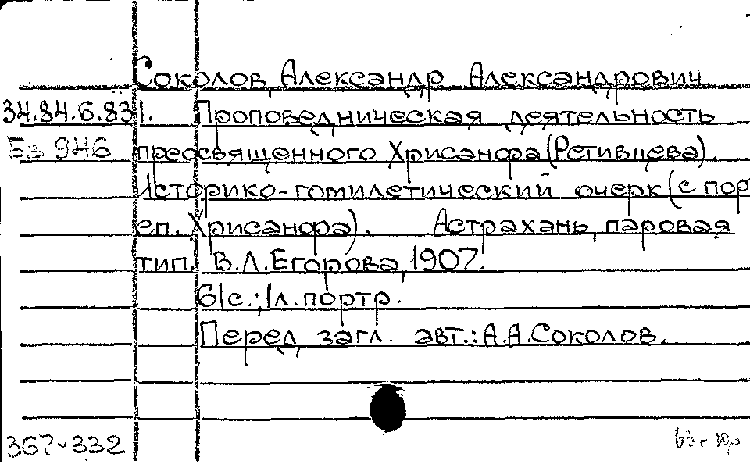 Соколов, Александр Александрович
34.84.6.831. Проповедническая деятельность
Бз 946 преосвященного Хрисанфа (Ретивцева).
Историко-гомилетический очерк (с пор
еп. Хрисанфа). Астрахань, паровая
тип. В.Л.Егорова, 1907.
61с.; 1л. портр.
Перед загл. авт.: А.А.Соколов.
367-332